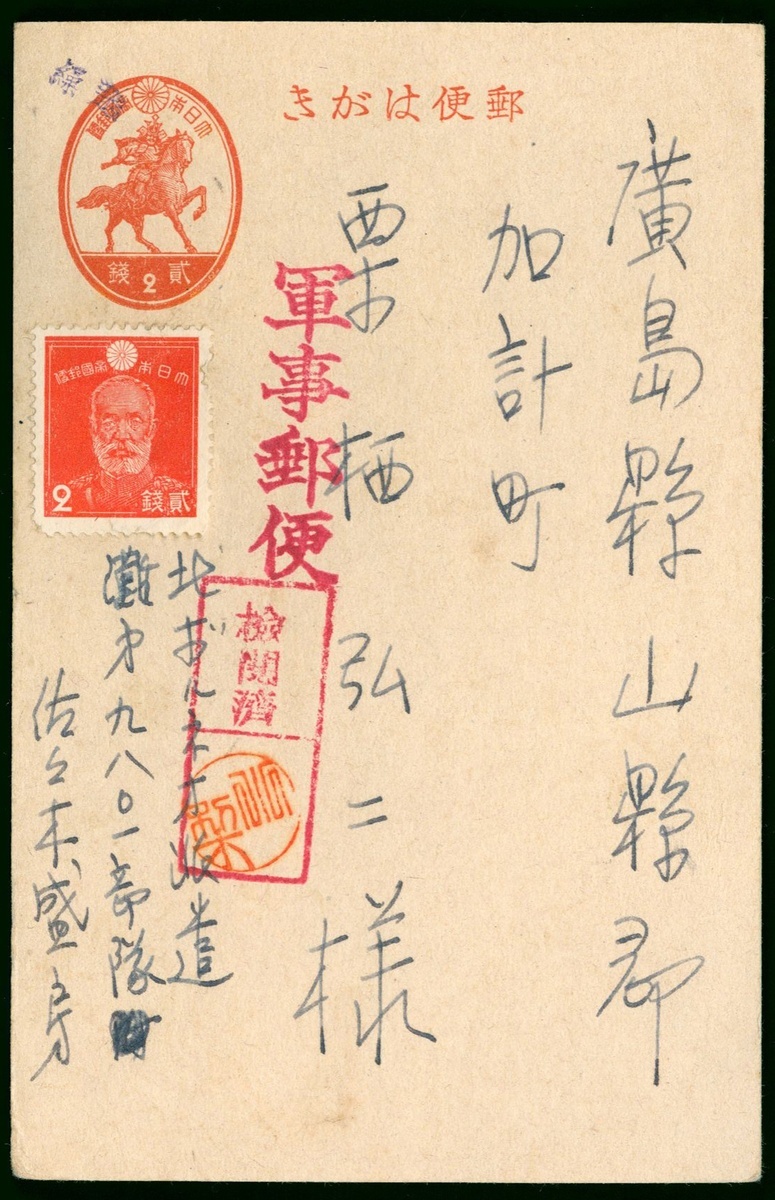 郵便はがき
廣島縣山縣郡
加計町
栗栖弘二様
軍事郵便
檢閲濟
大日本帝國郵便
貳2錢
大日本帝國郵便
2錢貳
北ボルネオ派遣
灘第九八〇一部隊
佐々木盛房